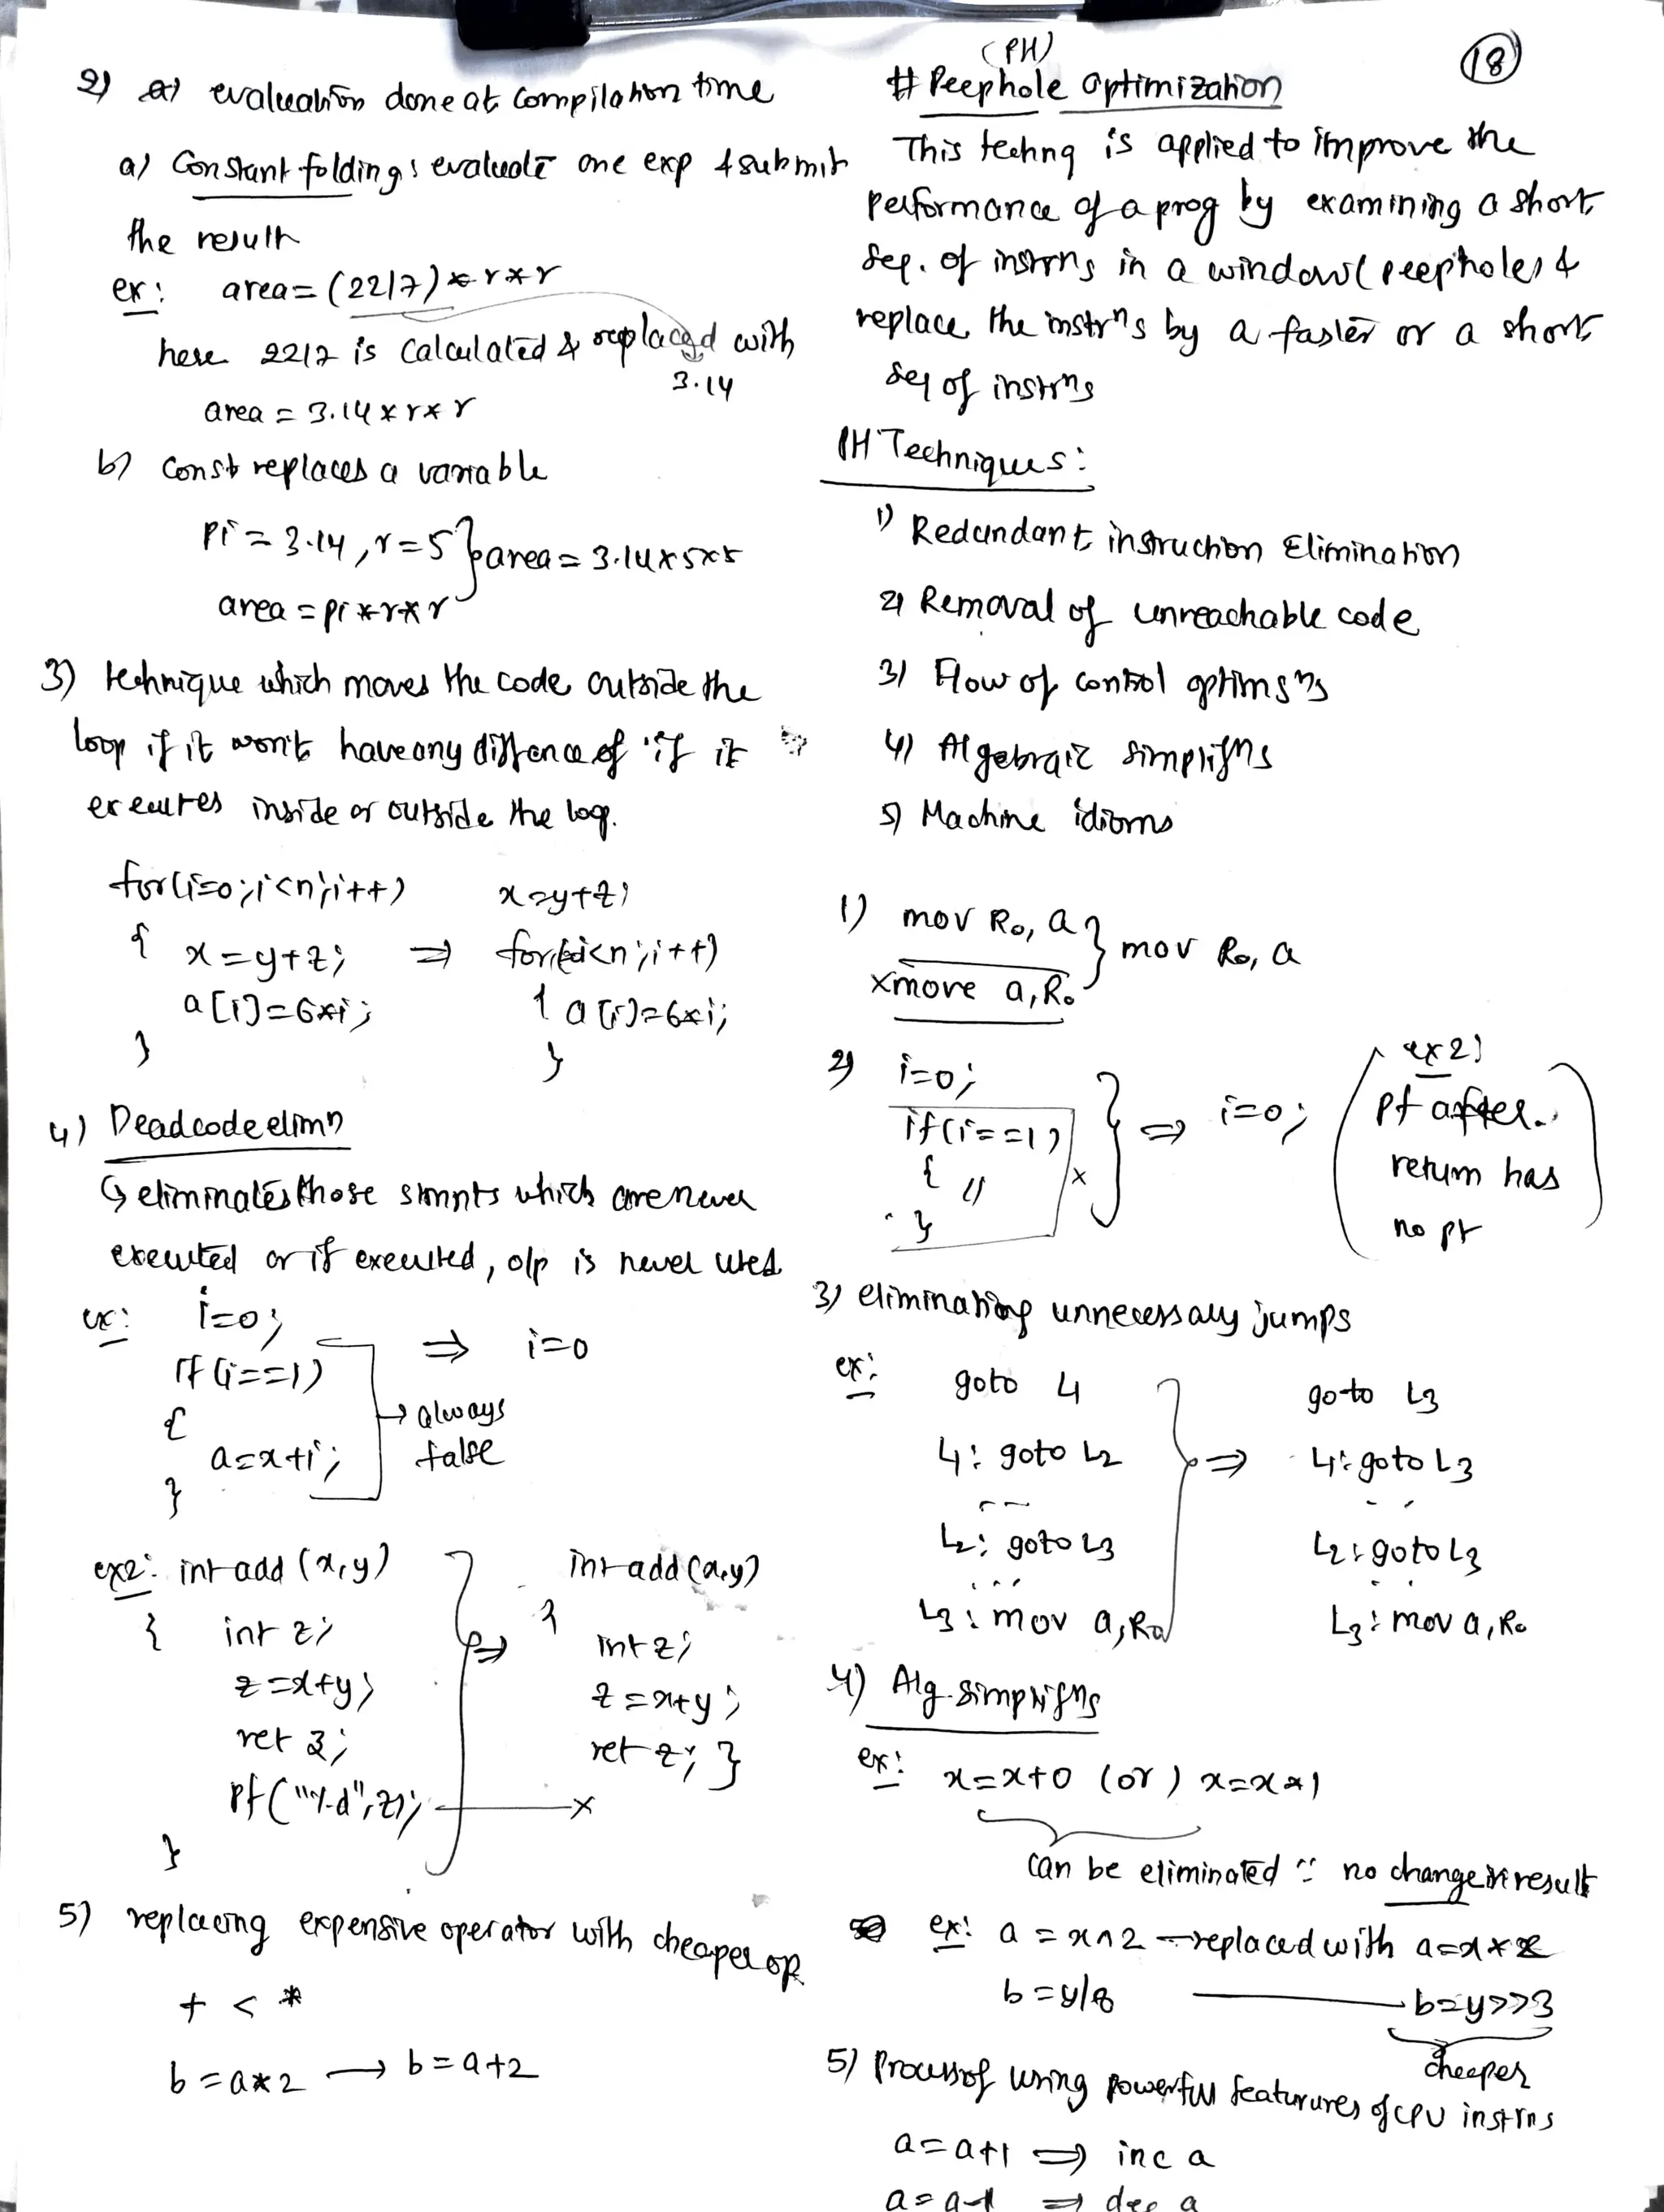 (PH)
18
2) a) evaluation done at compilation time
a) Constant folding: evaluate one exp & submit
the result
ex: area = (22/7) * r * r
here 22/7 is calculated & replaced with
3.14
area = 3.14 * r * r
b) Const replaces a variable
Pi = 3.14, r = 5 } area = 3.14 * 5 * 5
area = pi * r * r
3) technique which moves the code outside the
loop if it won't have any diffence of if it
executes inside or outside the loop.
for(i=0; i<n; i++) x=y+z;
{ x=y+z; ⇒ for(i<n; i++)
a[i]=6*i; { a[i]=6*i;
} }
4) Deadcode elimn
↳ eliminates those stmnts which are never
executed or if executed, o/p is never used
ex: i=0;
if(i==1) ⇒ i=0
{ → always
a=x+i; false
}
ex2: int add (x,y) int add(x,y)
{ int z; ⇒ {
z=x+y; int z;
ret z; z=x+y;
pf("%d",z); —x ret z; }
}
5) replacing expensive operator with cheaper op
+ < *
b = a*2 → b = a+2
# Peephole Optimization
This technq is applied to improve the
performance of a prog by examining a short
seq. of instrns in a window(peephole) &
replace the instrns by a faster or a short
seq of instrns
PH Techniques:
1) Redundant instruction Elimination
2) Removal of unreachable code
3) Flow of control optimsns
4) Algebraic simplifns
5) Machine idioms
1) mov R0, a } mov R0, a
x move a, R0
2) i=0;
if(i==1) } ⇒ i=0;
{ 11 x
}
ex2)
pf after
return has
no pf
3) eliminating unnecessary jumps
ex: goto L1 goto L3
L1: goto L2 ⇒ L1: goto L3
L2: goto L3 L2: goto L3
...
L3: mov a, R0 L3: mov a, R0
4) Alg. simplifns
ex: x=x+0 (or) x=x*1
can be eliminated ∵ no change in result
ex: a = x^2 — replaced with a=x*x
b = y/8 — b=y>>3
cheaper
5) Process of using powerful featurures of CPU instrns
a=a+1 ⇒ inc a
a=a-1 ⇒ dec a